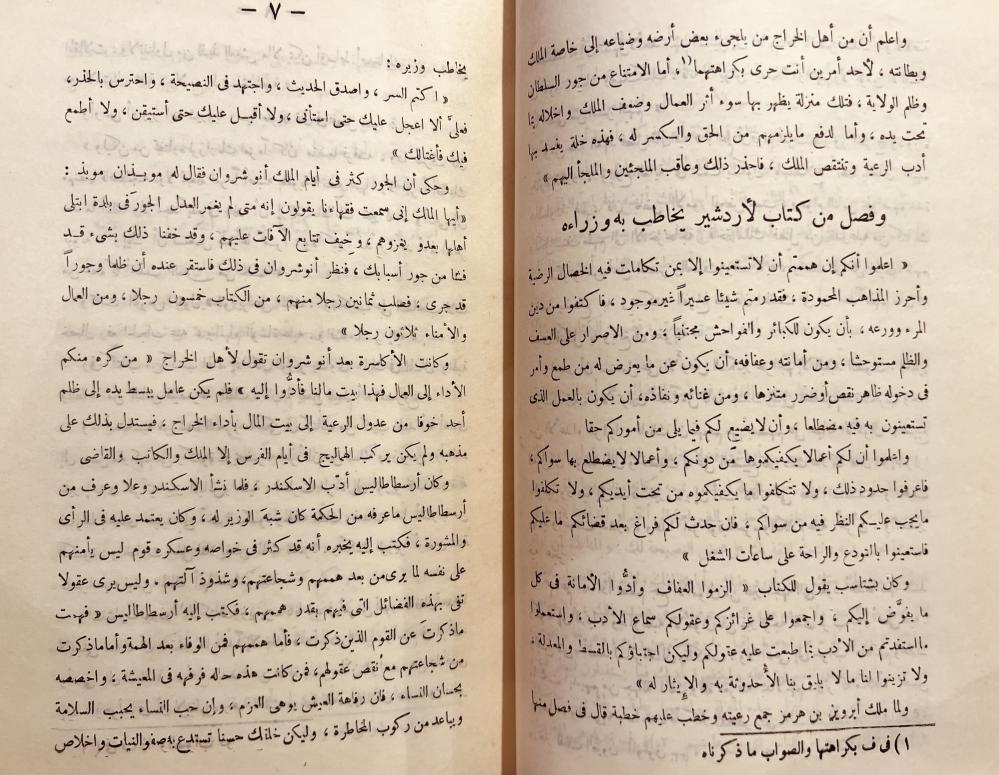 واعلم أن من أهل الخراج من يلجىء بعض أرضه وضياعه إلى خاصة الملك
وبطانته ، لأحد أمرين أنت حرى بكراهتهما ١) ، أما الامتناع من جور السلطان
وظلم الولاية ، فتلك منزلة يظهر بها سوء أثر العمال وضعف الملك واخلاله بما
تحت يده ، وأما لدفع مايلزمهم من الحق والسكسر له ، فهذه خلة يفسد بها
أدب الرعية وتنتقص الملك ، فاحذر ذلك وعاقب الملجئين والملجأ اليهم »
وفصل من كتاب لأردشير يخاطب به وزراءه
« اعلموا أنكم إن هممتم أن لا تستعينوا إلا بمن تكاملت فيه الخصال الرضية
وأحرز المذاهب المحمودة ، فقد رمتم شيئا عسيراً غير موجود ، فاكتفوا من دين
المرء وورعه ، بأن يكون للكبائر والفواحش مجتنباً ، ومن الاصرار على العسف
والظلم مستوحشا ، ومن أمانته وعفافه، أن يكون عن ما يعرض له من طمع وأمر
فى دخوله ظاهر نقص أوضرر متنزها ، ومن غنائه ونفاذه، أن يكون بالعمل الذى
تستعينون به فيه مضطلعا ، وأن لا يضيع لكم فيما يلى من أموركم حقا
واعلموا أن لكم أعمالا يكفيكموها مّن دونكم ، وأعمالا لايضطلع بها سواكم،
فاعرفوا حدود ذلك ، ولا تتكلفوا ما يكفيكموه من تحت أيديكم ، ولا تكلفوا
مايجب عليكم النظر فيه من سواكم ، فان حدث لكم فراغ بعد قضائكم ما عليكم
فاستعينوا بالتودع والراحة على ساعات الشغل »
وكان بشتاسب يقول للكتاب « الزموا العفاف وأدُّوا الأمانة فى كل
ما يفوَّض إليكم ، واجمعوا على غرائزكم وعقولكم سماع الأدب ، واستعملوا
مااستفدتم من الأدب بما طبعت عليه عقولكم وليكن اجتباؤكم بالقسط والمعدلة ،
ولا تزينوا لنا ما لا يليق بنا الأحدوثة به والإيثار له »
ولما ملك أبرويز بن هرمز جمع رعيته وخطب عليهم خطبة قال فى فصل منها
١) فى ف بكراهتها والصواب ما ذكرناه
— ٧ —
يخاطب وزيره :
« اكتم السر ، واصدق الحديث ، واجتهد فى النصيحة ، واحترس بالحذر،
فعلىَّ ألا اعجل عليك حتى استأنى ، ولا أقبل عليك حتى أستيقن ، ولا أطمع
فيك فأغتالك »
وحكى أن الجور كثر فى أيام الملك أنو شروان فقال له موبذان موبذ :
«أيها الملك إنى سمعت فقهاءنا يقولون إنه متى لم يغمر العدل الجور فى بلدة ابتلى
أهلها بعدو يغزوهم ، وخيف تتابع الآفات عليهم ، وقد خفنا ذلك بشىء قد
فشا من جور أسبابك ، فنظر أنوشروان فى ذلك فاستقر عنده أن ظلما وجوراً
قد جرى ، فصلب ثمانين رجلا منهم ، من الكتاب خمسون رجلا ، ومن العمال
والأمناء ثلاثون رجلا »
وكانت الأكاسرة بعد أنو شروان تقول لأهل الخراج « من كره منكم
الأداء إلى العمال فهذا بيت مالنا فأدُّوا إليه » فلم يكن عامل يبسط يده إلى ظلم
أحد خوفا من عدول الرعية إلى بيت المال بأداء الخراج ، فيستدل بذلك على
مذهبه ولم يكن يركب الهماليج فى أيام الفرس إلا الملك والكاتب والقاضى
وكان أرسطاطاليس أدّب الاسكندر ، فلما نشأ الاسكندر وعلا وعرف من
أرسطاطاليس ماعرفه من الحكمة كان شبه الوزير له ، وكان يعتمد عليه فى الرأى
والمشورة ، فكتب إليه يخبره أنه قد كثر فى خواصه وعسكره قوم ليس يأمنهم
على نفسه لما يرى من بعد هممهم وشجاعتهم، وشذوذ آلتهم . وليس يرى عقولا
تفى بهذه الفضائل التى فيهم بقدر هممهم ، فكتب إليه أرسطاطاليس « فهمت
ماذكرت عن القوم الذين ذكرت ، فأما هممهم فمن الوفاء بعد الهمة وأما ماذكرت
من شجاعتهم مع نقص عقولهم، فمن كانت هذه حاله فرفهه فى المعيشة ، واخصصه
بحسان النساء ، فان رفاهة العيش يوهى العزم ، وإن حب النساء يحبب السلامة
ويباعد من ركوب المخاطرة ، وليكن خلقك حسنا تستدع به صفو النيات واخلاص